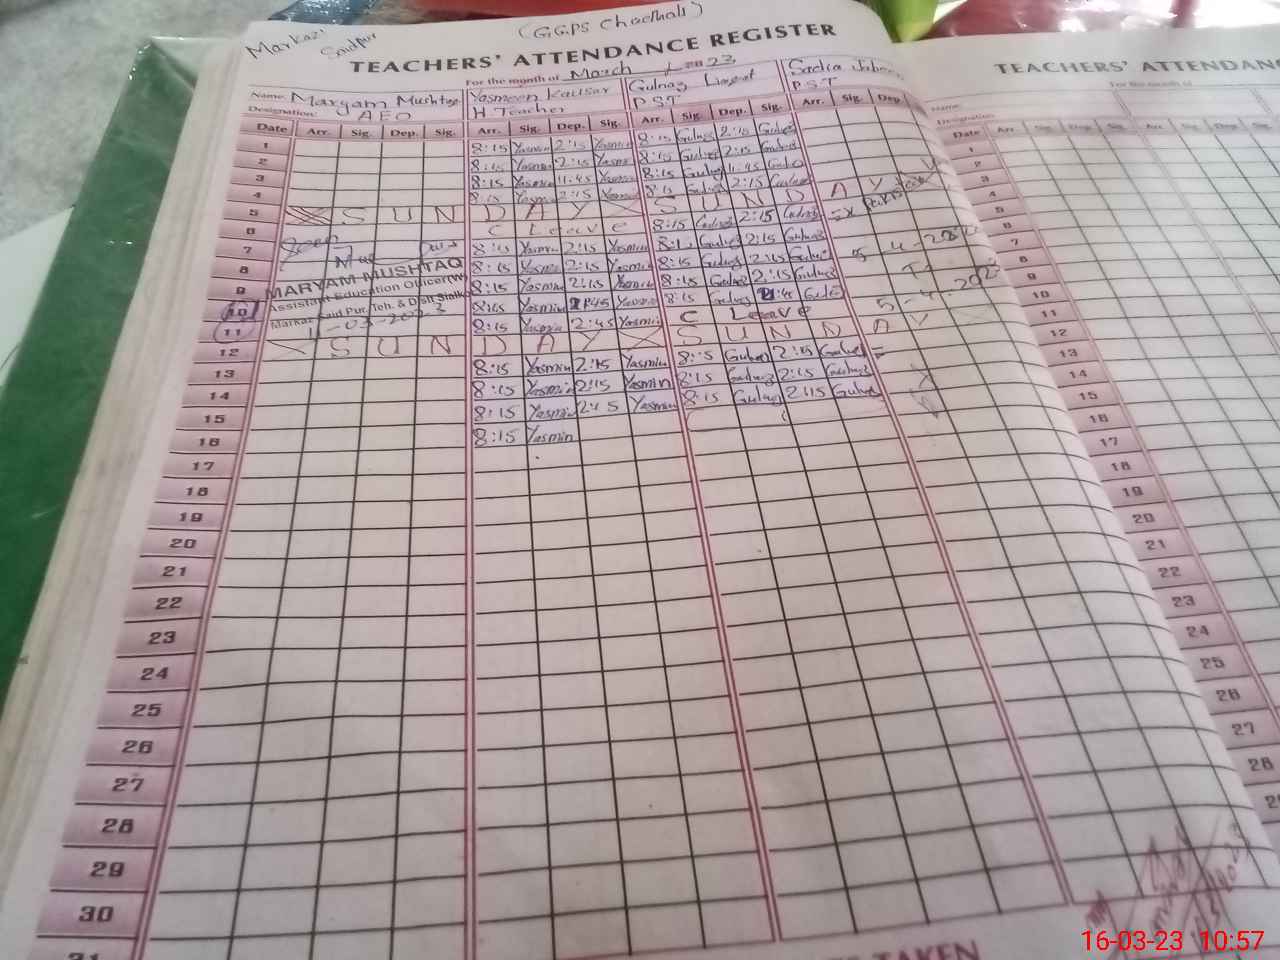 Markaz Saidpur
(GGPS Chaekhali)
TEACHERS' ATTENDANCE REGISTER
For the month of March 2023
Name: Maryam Mushtaq Yasmeen Kausar Gulnaz Liaqat Sadia Jabeen
Designation: AEO H. Teacher PST PST
Date Arr. Sig. Dep. Sig. Arr. Sig. Dep. Sig. Arr. Sig. Dep. Sig. Arr. Sig. Dep.
1 8:15 Yasmin 2:15 Yasmin 8:15 Gulnaz 2:15 Gulnaz
2 8:15 Yasmin 2:15 Yasmin 8:15 Gulnaz 2:15 Gulnaz
3 8:15 Yasmin 11:45 Yasmin 8:15 Gulnaz 11:45 Gulnaz
4 8:15 Yasmin 2:15 Yasmin 8:15 Gulnaz 2:15 Gulnaz
5 S U N D A Y S U N D A Y
6 C Leave 8:15 Gulnaz 2:15 Gulnaz
7 Seen 8:15 Yasmin 2:15 Yasmin 8:15 Gulnaz 2:15 Gulnaz
8 8:15 Yasmin 2:15 Yasmin 8:15 Gulnaz 2:15 Gulnaz
MARYAM MUSHTAQ
9 8:15 Yasmin 2:15 Yasmin 8:15 Gulnaz 2:15 Gulnaz
Assistant Education Officer(W)
10 8:15 Yasmin Yasmin 8:15 Gulnaz Gulnaz
Markaz Said Pur, Teh. & Distt Sialkot
11 11-03-2023 8:15 Yasmin 2:45 Yasmin C Leave
12 S U N D A Y S U N D A Y
13 8:15 Yasmin 2:15 Yasmin 8:15 Gulnaz 2:15 Gulnaz
14 8:15 Yasmin 2:15 Yasmin 8:15 Gulnaz 2:15 Gulnaz
15 8:15 Yasmin 2:15 Yasmin 8:15 Gulnaz 2:15 Gulnaz
16 8:15 Yasmin
17
18
19
20
21
22
23
24
25
26
27
28
29
30
31
TAKEN
TEACHERS' ATTENDANC
For the month of
Name:
Designation:
Date Arr. Sig. Dep. Sig. Arr. Sig. Dep.
1
2
3
4
5
6
7
8
9
10
11
12
13
14
15
16
17
18
19
20
21
22
23
24
25
26
27
28
16-03-23 10:57